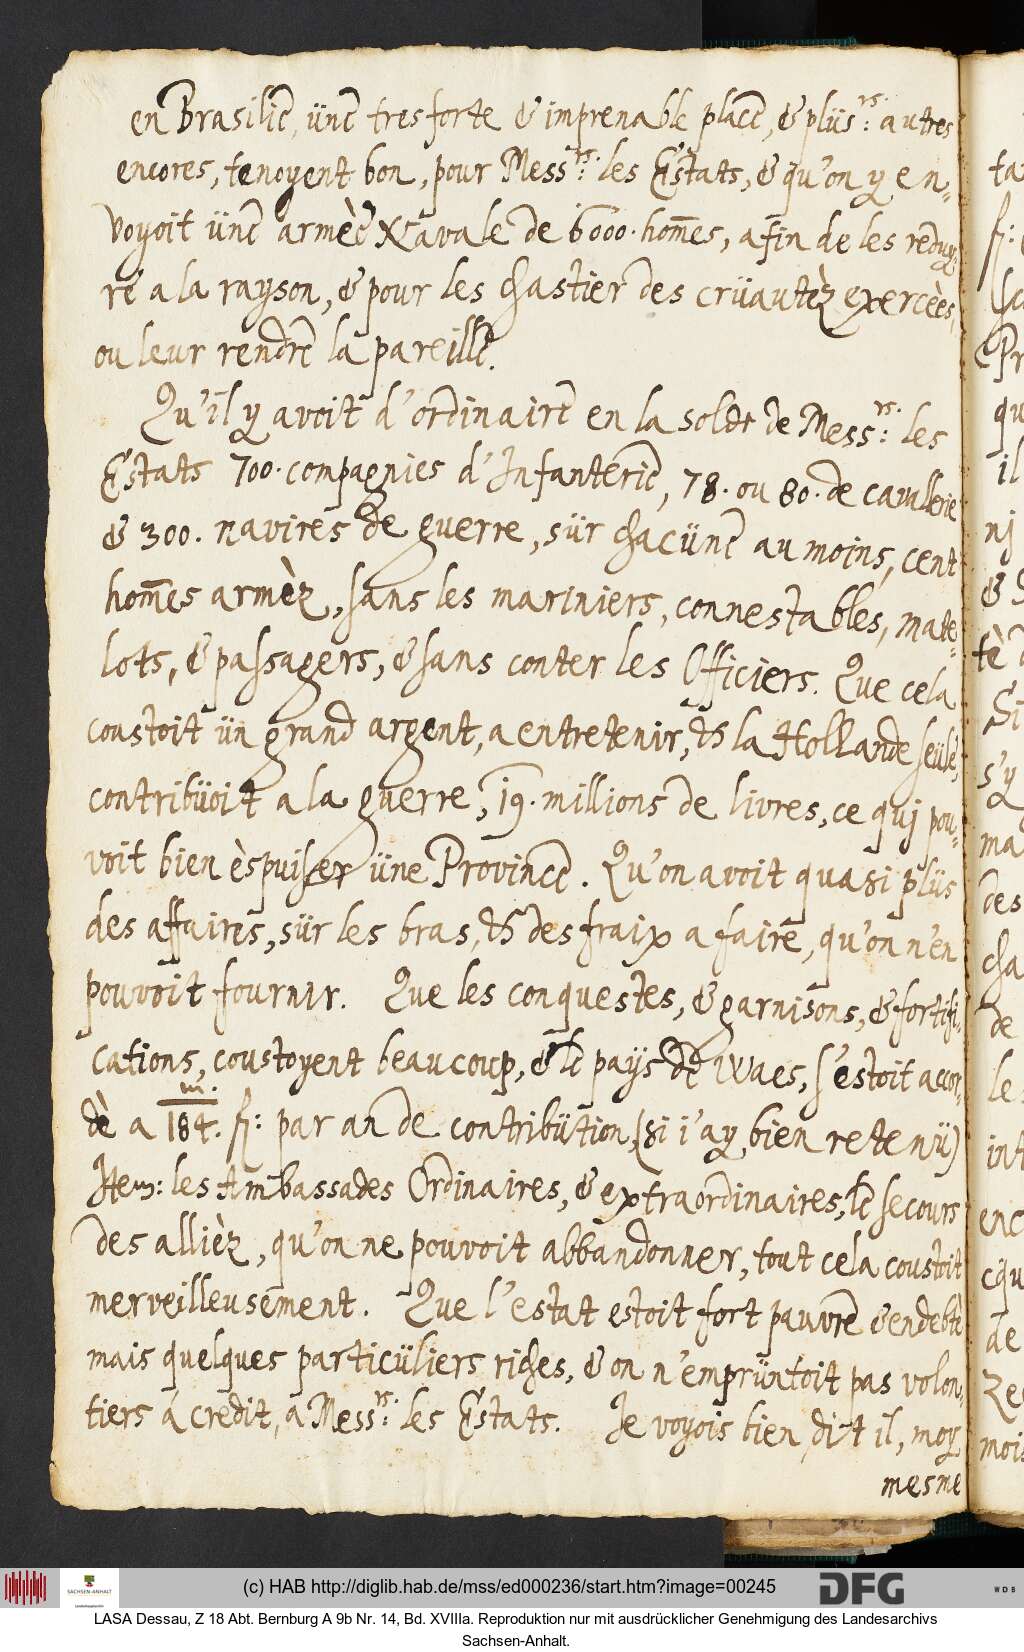 en Brasilie, üne tres forte & imprenable place, & plüs:rs. autres
encores, tenoyent bon, pour Mess:rs. les Estats, & qu'on y en-
voyoit üne armèe Navale de 6000. hom̃es, afin de les reduy-
re a la rayson, & pour les chastier des crüautèz exercèes,
ou leur rendre la pareille.
Qu'il y avoit d'ordinaire en la solde de Mess:rs. les
Estats 700. compagnies d'Infanterie, 78. ou 80. de cavallerie
& 300. navires de guerre, sür chacüne au moins, cent
hom̃es armèz, sans les mariniers, connestables, mate-
lots, & passagers, & sans conter les Officiers. Que cela
coustoit ün grand argent, a entretenir, & la Hollande seüle,
contribüoit a la guerre, 19. millions de livres, ce quj pou-
voit bien èspuiser üne Province. Qu'on avoit quasi plüs
des affaires, sür les bras, & des fraix a faire, qu'on n'en
pouvoit fournir. Que les conquestes, & garnisons, & fortifi-
cations, coustoyent beaucoup, & le pays de Waes, s'estoit accor-
dè a 184.m. fl: par an de contribütion, (si i'ay bien retenü)
Item: les Ambassades Ordinaires, & extraordinaires, le secours
des allièz, qu'on ne pouvoit abbandonner, tout cela coustoit
merveilleusement. Que l'estat estoit fort pauvre & endebtè
mais quelques particüliers riches, & on n'emprüntoit pas volon-
tiers á credit, a Mess:rs. les Estats. Je voyois bien, dit il, moy
mesme
(c) HAB http://diglib.hab.de/mss/ed000236/start.htm?image=00245
SACHSEN-ANHALT
DFG
WDB
LASA Dessau, Z 18 Abt. Bernburg A 9b Nr. 14, Bd. XVIIIa. Reproduktion nur mit ausdrücklicher Genehmigung des Landesarchivs
Sachsen-Anhalt.